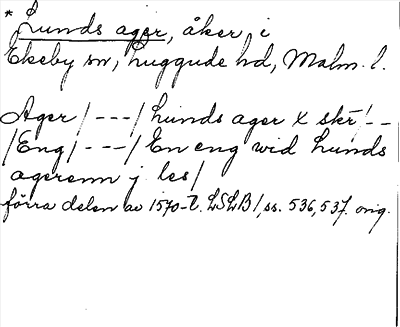 * Lunds ager, åker i
Ekeby sn, Luggude hd, Malm. l.
Ager/---/Lunds ager x skr/--
/Eng/---/En eng wid Lunds
agerenn j les/
förra delen av 1570-t. LSLB/, ss. 536, 537. orig.